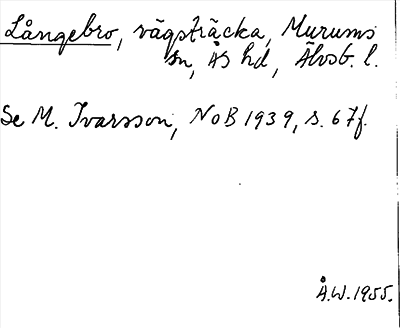 Långebro, vägsträcka, Murums
sn, Ås hd, Älvsb. l.
Se M. Ivarsson, NoB 1939, s. 67f.
Å.W. 1955.